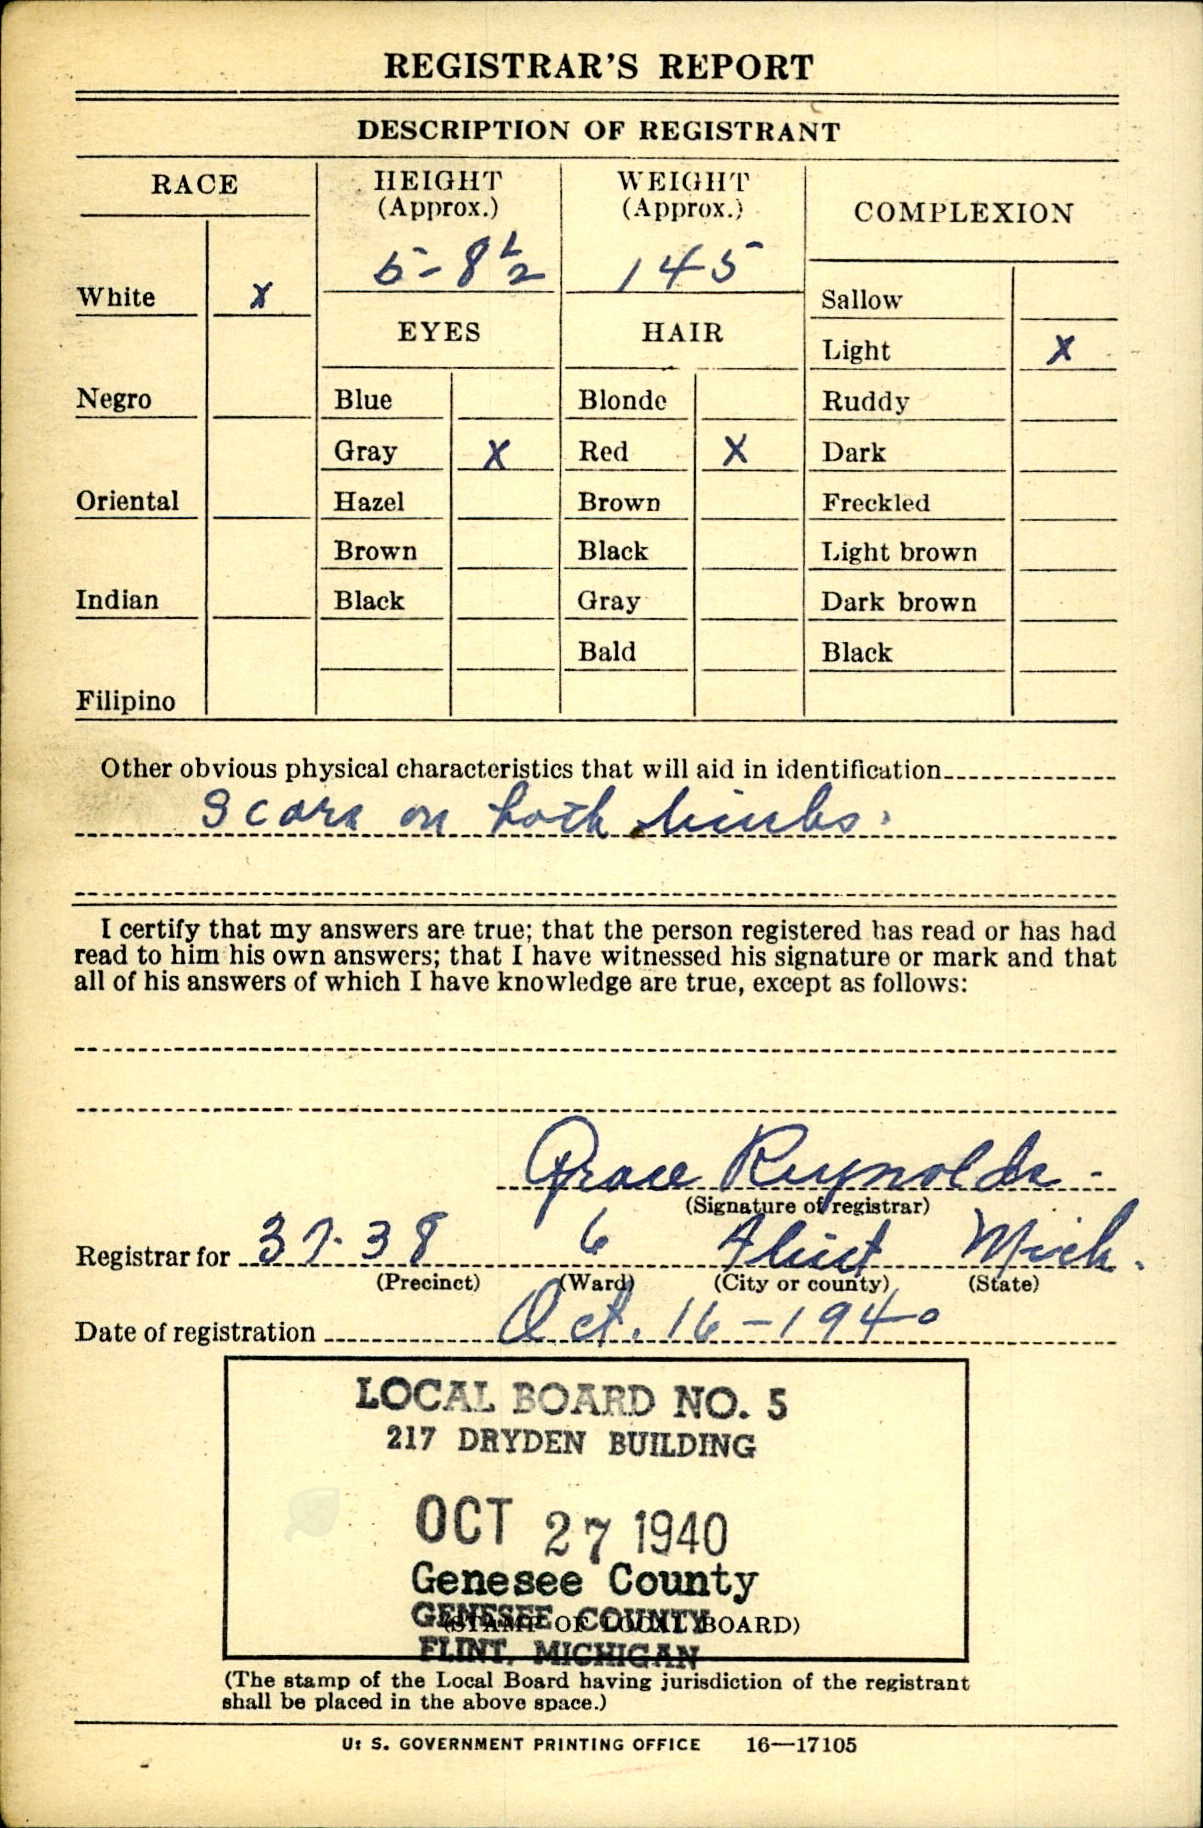 REGISTRAR'S REPORT
DESCRIPTION OF REGISTRANT
RACE
HEIGHT
(Approx.)
WEIGHT
(Approx.)
COMPLEXION
5-8½
145
White X
Sallow
EYES
HAIR
Light X
Negro
Blue
Blonde
Ruddy
Gray X
Red X
Dark
Oriental
Hazel
Brown
Freckled
Brown
Black
Light brown
Indian
Black
Gray
Dark brown
Bald
Black
Filipino
Other obvious physical characteristics that will aid in identification
Scars on both limbs.
I certify that my answers are true; that the person registered has read or has had
read to him his own answers; that I have witnessed his signature or mark and that
all of his answers of which I have knowledge are true, except as follows:
Grace Reynolds
(Signature of registrar)
Registrar for 37-38 6 Flint Mich.
(Precinct) (Ward) (City or county) (State)
Date of registration Oct. 16-1940
LOCAL BOARD NO. 5
217 DRYDEN BUILDING
OCT 27 1940
Genesee County
GENESEE COUNTY
(STAMP OF LOCAL BOARD)
FLINT, MICHIGAN
(The stamp of the Local Board having jurisdiction of the registrant
shall be placed in the above space.)
U. S. GOVERNMENT PRINTING OFFICE 16—17105